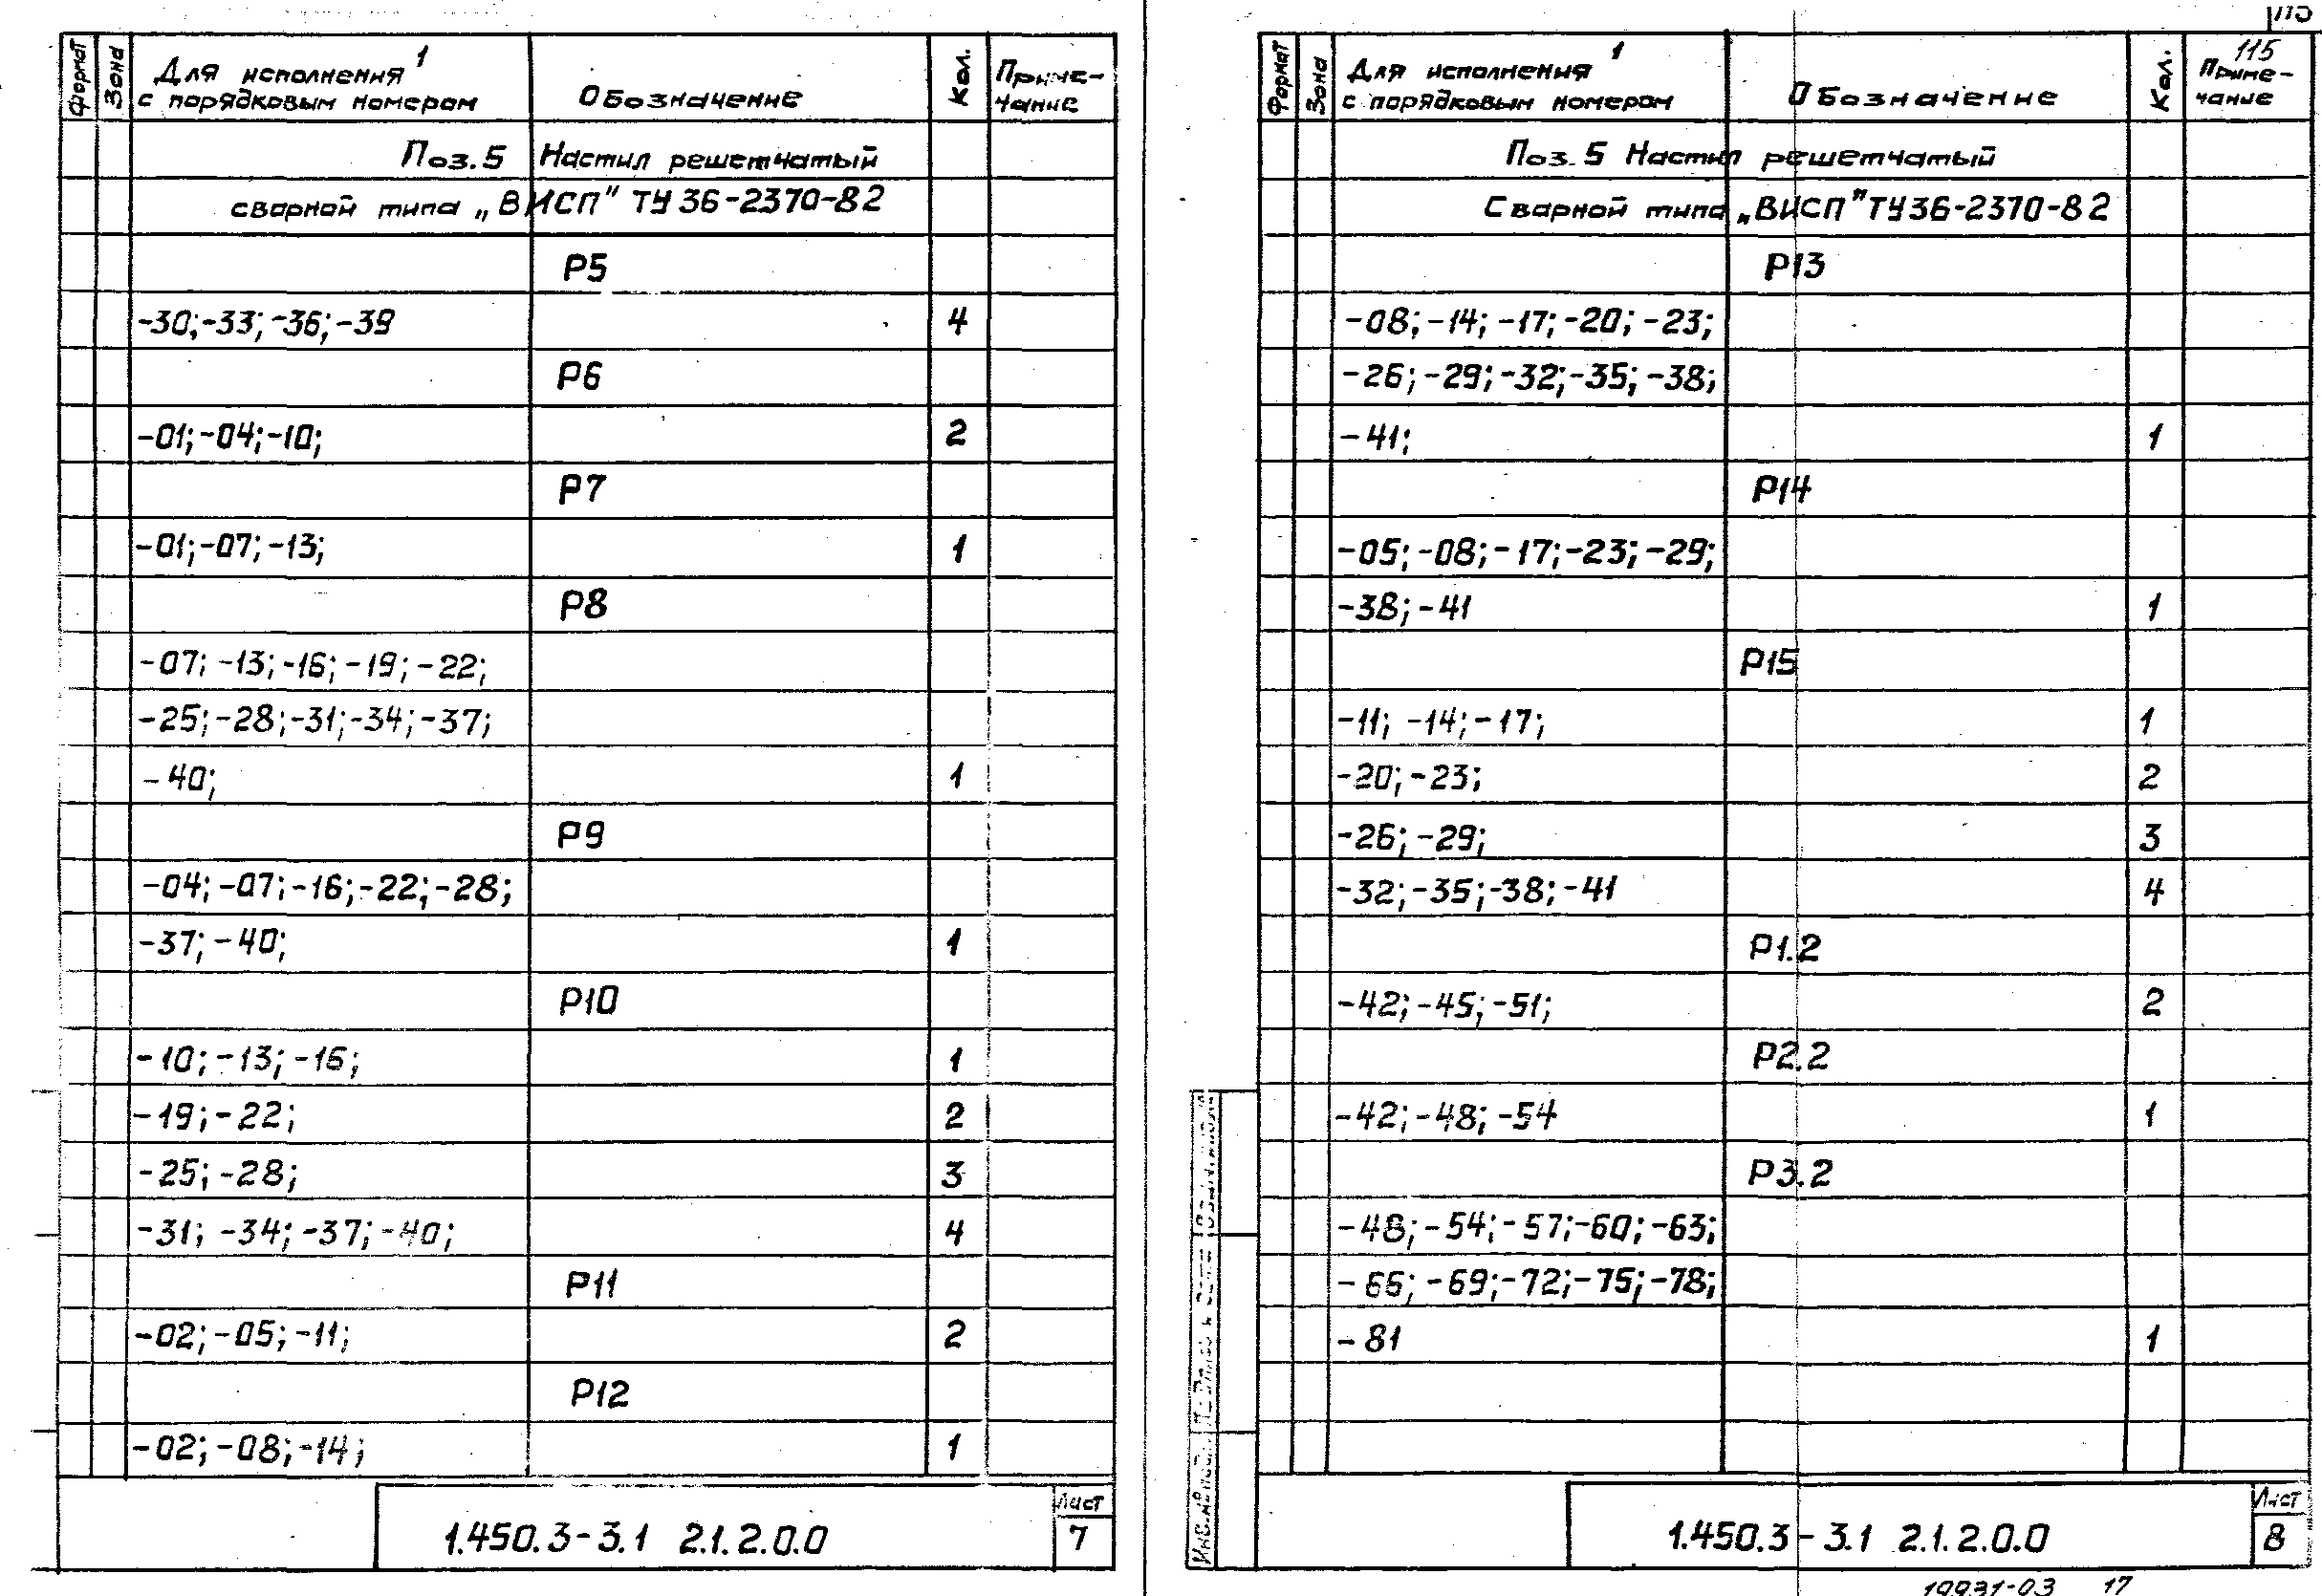 Формат
Зона
Для исполнения 1
с порядковым номером
Обозначение
Кол.
Приме-
чание
Поз. 5 Настил решетчатый
сварной типа „ВИСП" ТУ 36-2370-82
Р5
-30; -33; -36; -39 4
Р6
-01; -04; -10; 2
Р7
-01; -07; -13; 1
Р8
-07; -13; -16; -19; -22;
-25; -28; -31; -34; -37;
-40; 1
Р9
-04; -07; -16; -22; -28;
-37; -40; 1
Р10
-10; -13; -16; 1
-19; -22; 2
-25; -28; 3
-31; -34; -37; -40; 4
Р11
-02; -05; -11; 2
Р12
-02; -08; -14; 1
1.450.3-3.1 2.1.2.0.0
Лист
7
115
Формат
Зона
Для исполнения 1
с порядковым номером
Обозначение
Кол.
Приме-
чание
Поз. 5 Настил решетчатый
Сварной типа „ВИСП" ТУ 36-2370-82
Р13
-08; -14; -17; -20; -23;
-26; -29; -32; -35; -38;
-41; 1
Р14
-05; -08; -17; -23; -29;
-38; -41 1
Р15
-11; -14; -17; 1
-20; -23; 2
-26; -29; 3
-32; -35; -38; -41 4
Р1.2
-42; -45; -51; 2
Р2.2
-42; -48; -54 1
Р3.2
-48; -54; -57; -60; -63;
-66; -69; -72; -75; -78;
-81 1
1.450.3-3.1 2.1.2.0.0
Лист
8
19931-03 17